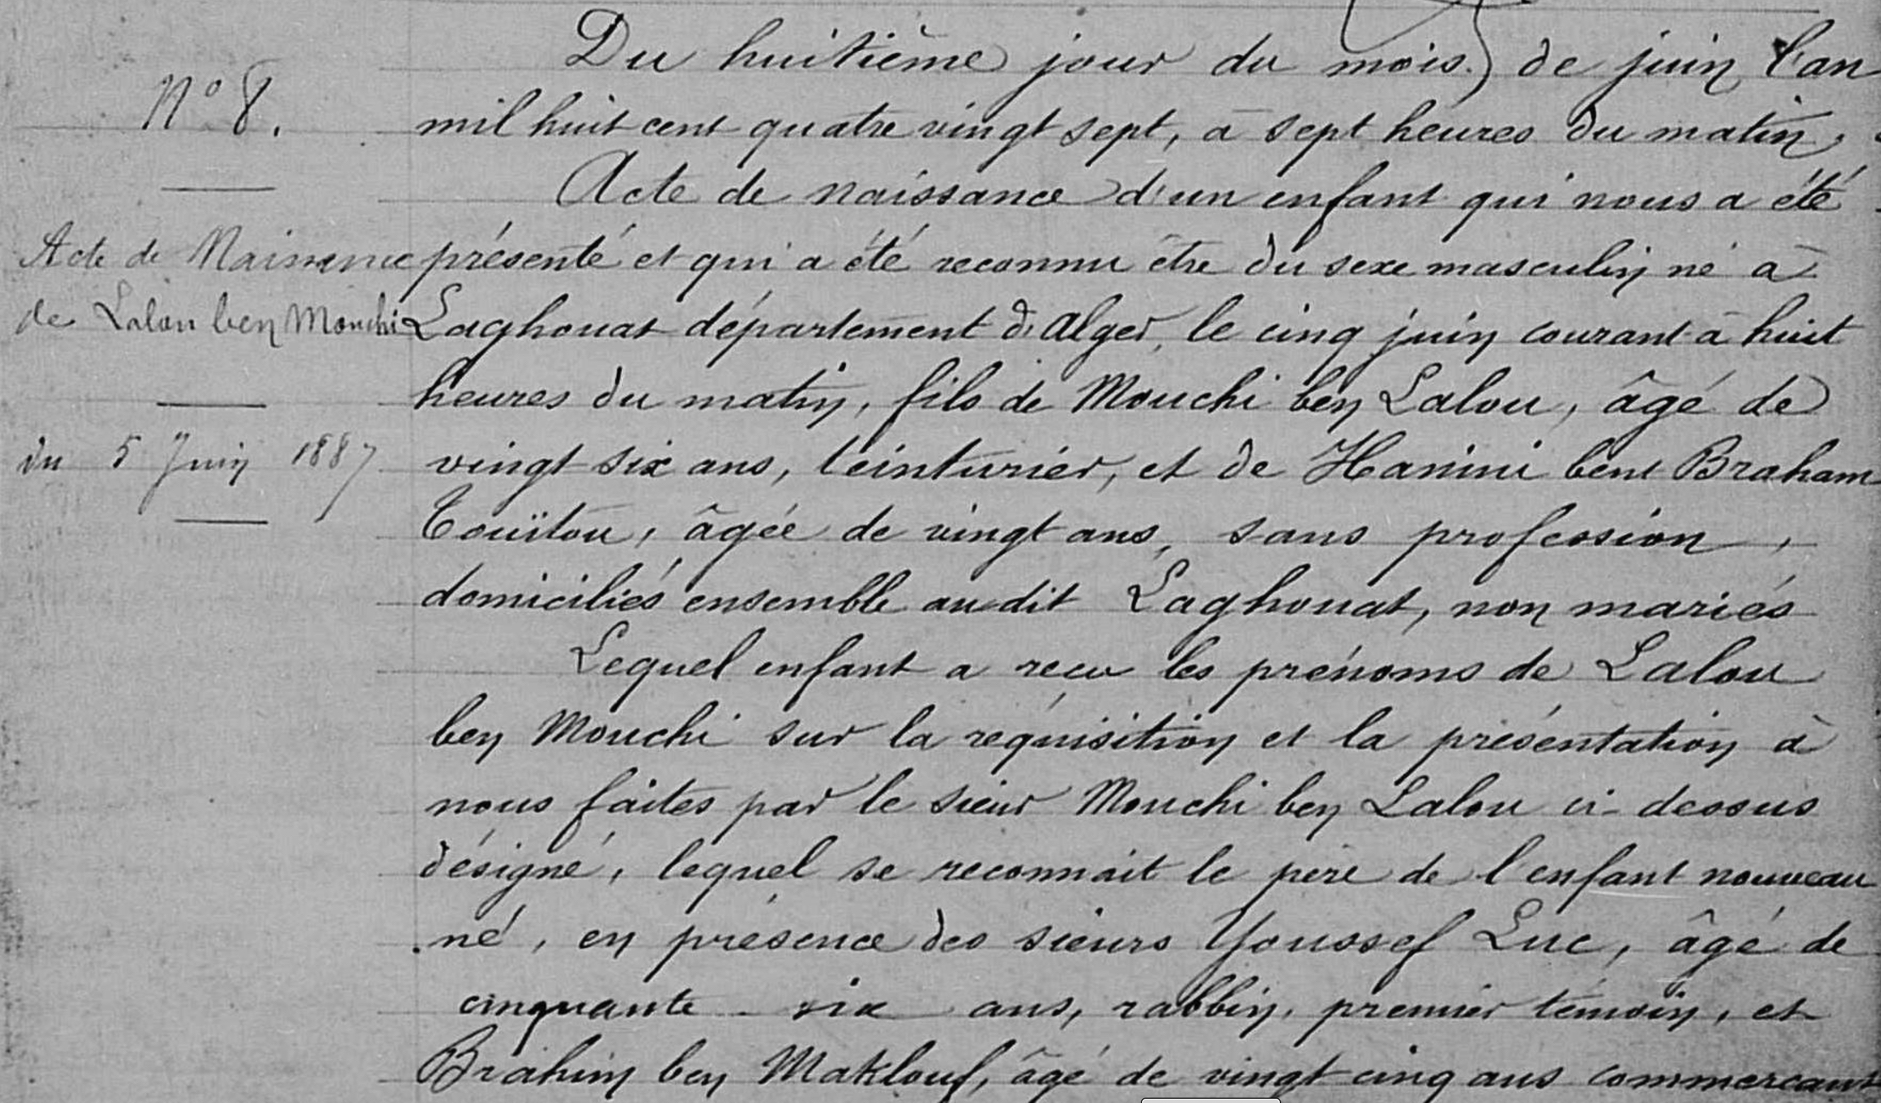 N° 8.
Acte de Naissance
de Lalou ben Mouchi
du 5 Juin 1887
Du huitième jour du mois de juin l'an
mil huit cent quatre vingt sept, à sept heures du matin,
Acte de naissance d'un enfant qui nous a été
présenté et qui a été reconnu être du sexe masculin né à
Laghouat département d'Alger, le cinq juin courant à huit
heures du matin, fils de Mouchi ben Lalou, âgé de
vingt six ans, teinturier, et de Hanini bent Braham
Touïtou, âgée de vingt ans, sans profession,
domiciliés ensemble au dit Laghouat, non mariés
Lequel enfant a recu les prénoms de Lalou
ben Mouchi sur la réquisition et la présentation à
nous faites par le sieur Mouchi ben Lalou ci-dessus
désigné, lequel se reconnait le père de l'enfant nouveau
né, en présence des sieurs Youssef Luc, âgé de
cinquante - six ans, rabbin, premier témoin, et
Brahim ben Maklouf, âgé de vingt cinq ans commercant